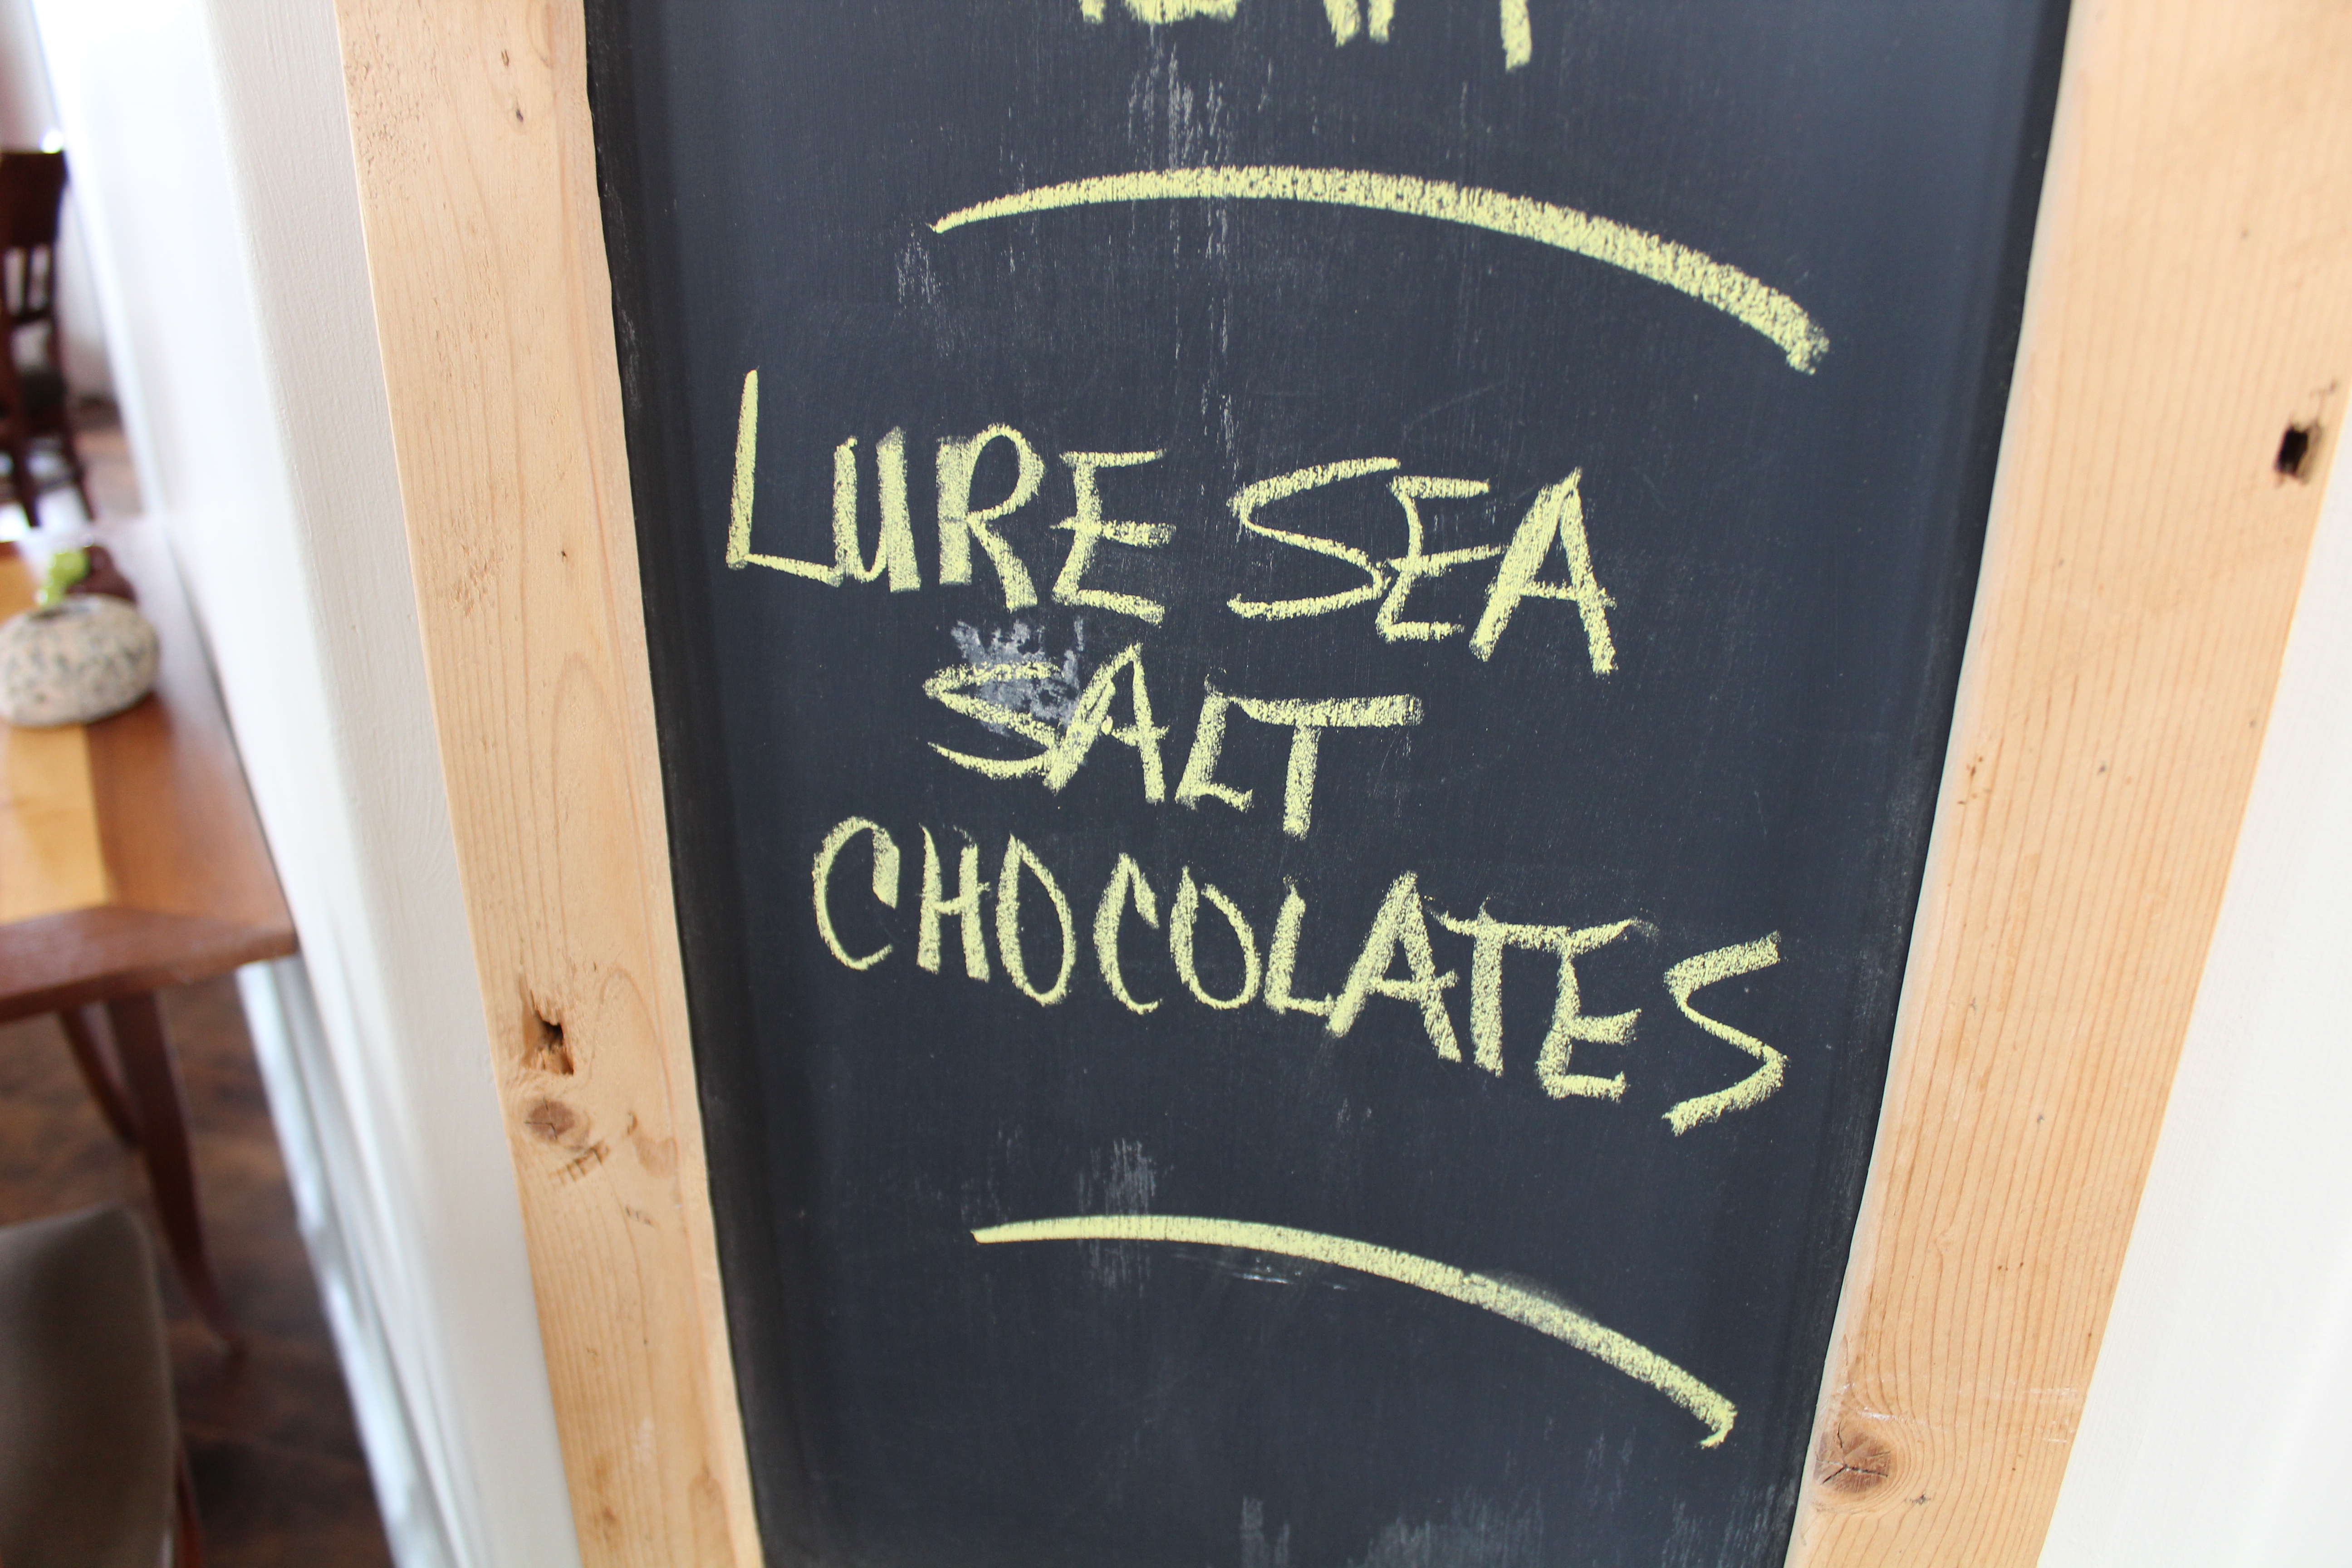 LURE SEA
SALT
CHOCOLATES